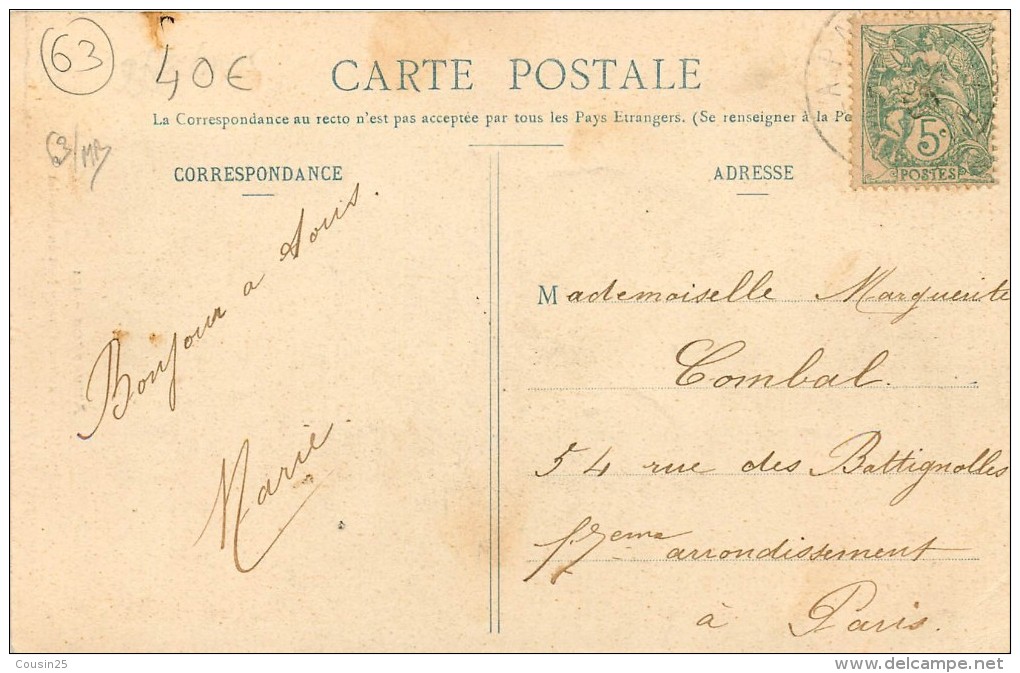 63
40€
CARTE POSTALE
La Correspondance au recto n'est pas acceptée par tous les Pays Etrangers. (Se renseigner à la Po
63/MB
CORRESPONDANCE
ADRESSE
5c
POSTES
Bonjour a tous.
Marie
Mademoiselle Marguerite
Combal.
54 rue des Battignolles
17eme arrondissement
à Paris.
Cousin25
www.delcampe.net